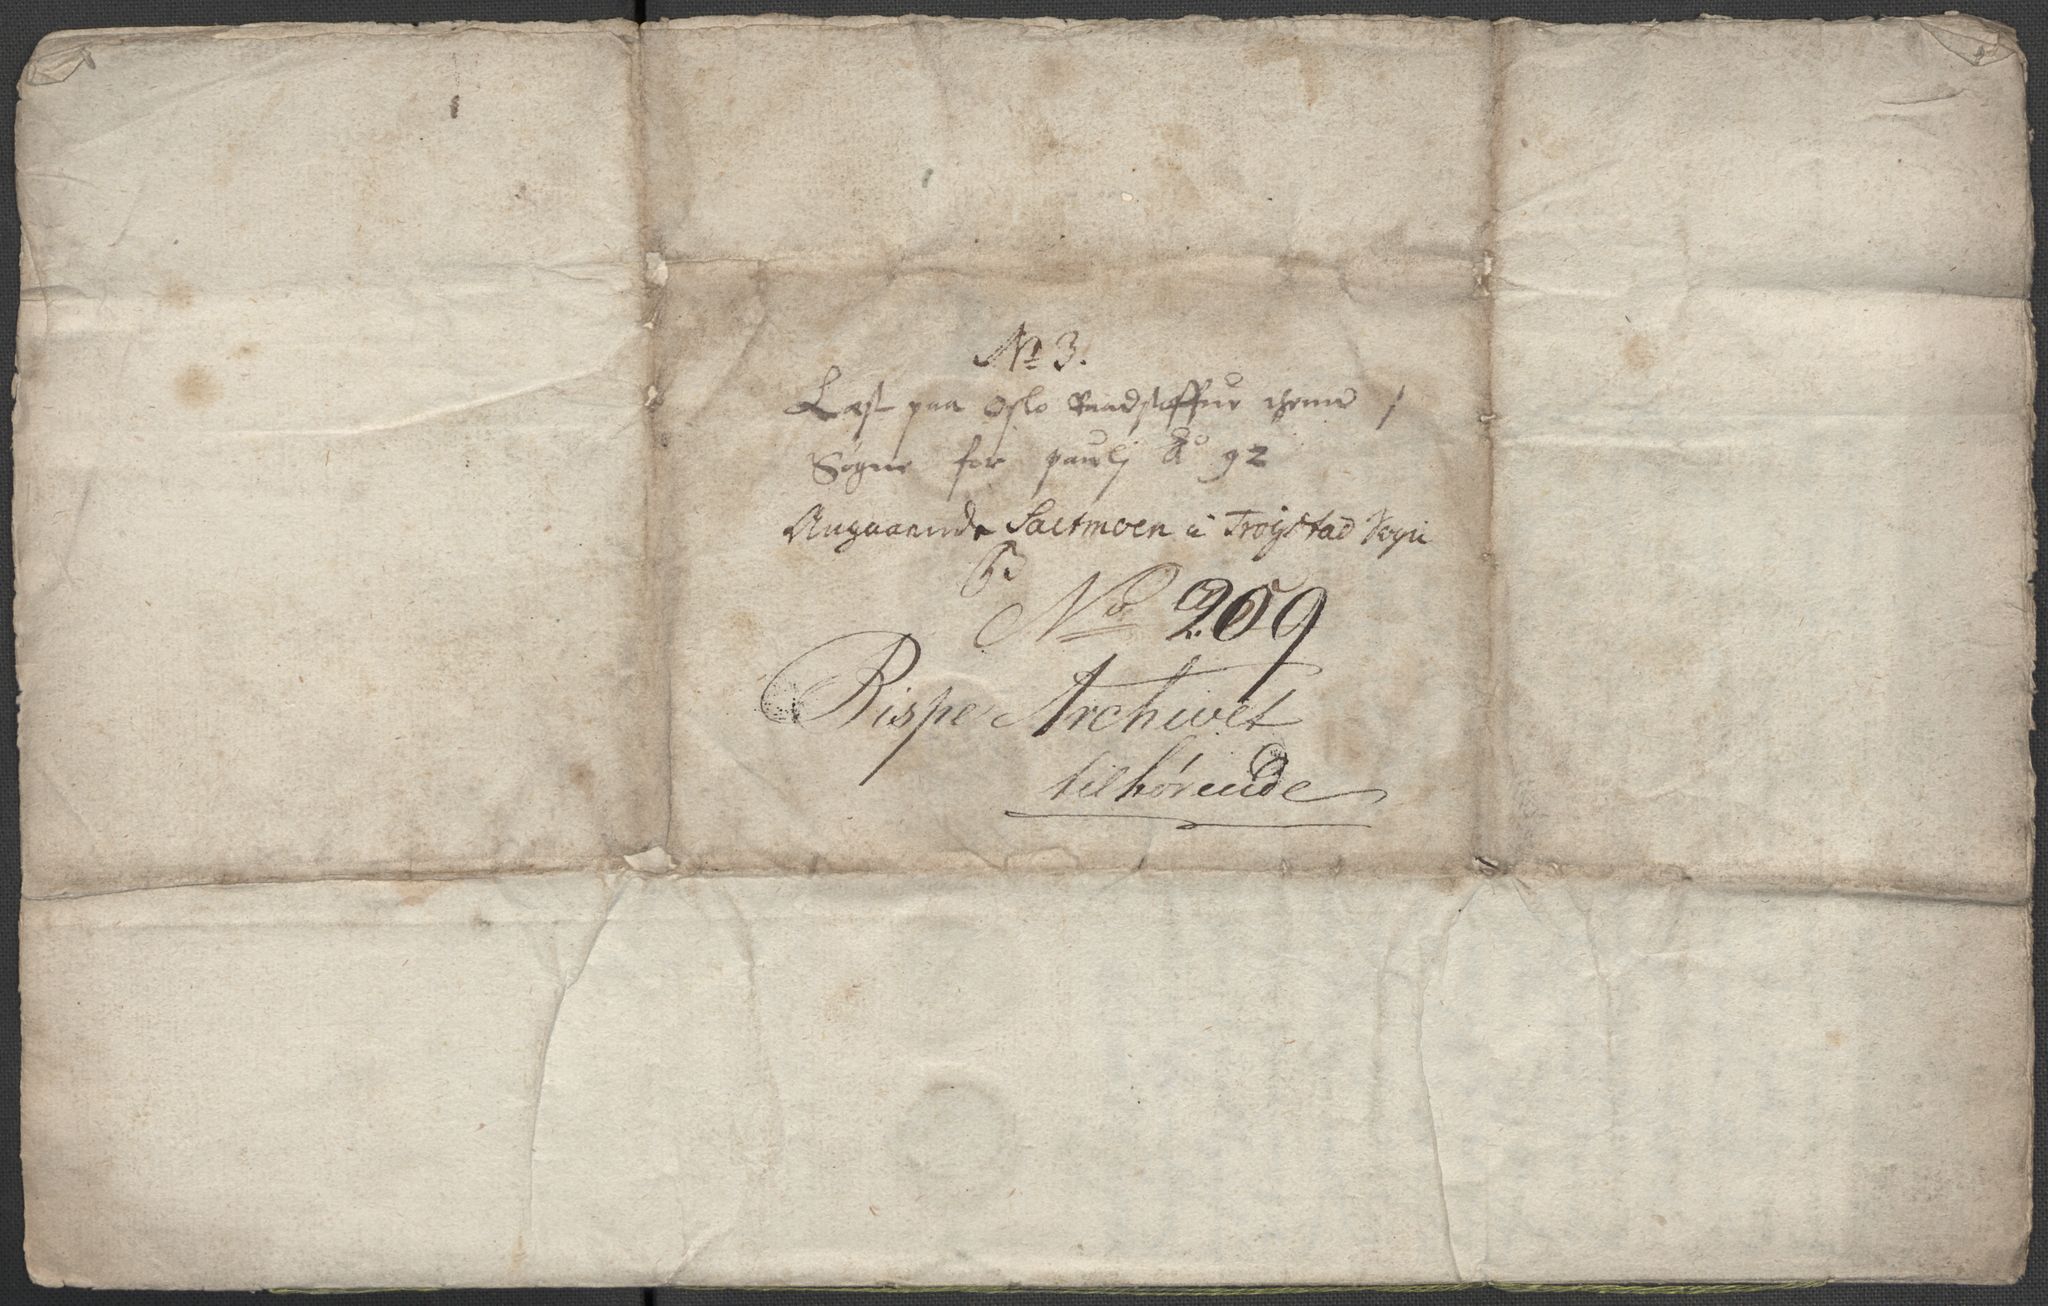 No 3.
Læst paa Oslo Raadstaffue
Søgne for paulj Ao 92
Angaaende Saltmoen i Trøgstad Sogn
No 209
Bispe Archivet
tilhørende